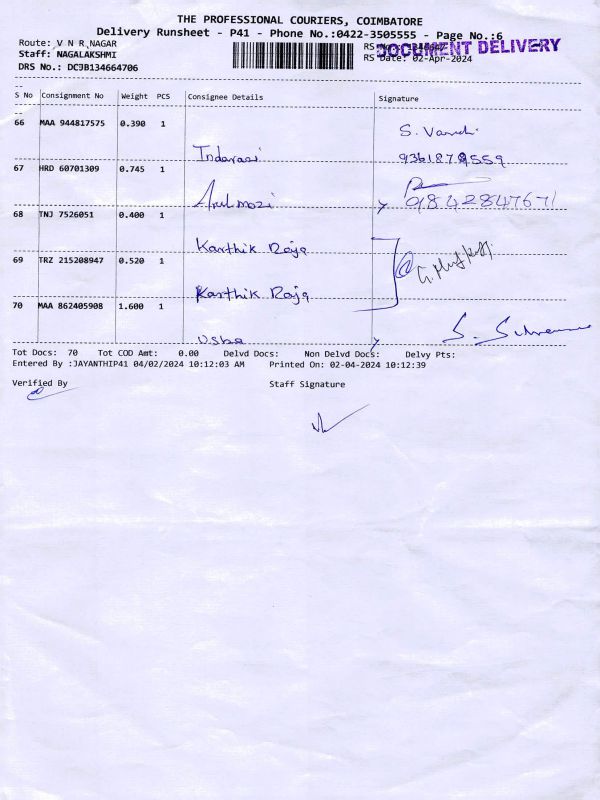 THE PROFESSIONAL COURIERS, COIMBATORE
Delivery Runsheet - P41 - Phone No.:0422-3505555 - Page No.:6
Route: V N R NAGAR
RS No.:
DOCUMENT DELIVERY
Staff: NAGALAKSHMI
RS Date: 02-Apr-2024
DRS No.: DCJB134664706
S No Consignment No Weight PCS Consignee Details Signature
66 MAA 944817575 0.390 1
S.
Indarasi
67 HRD 60701309 0.745 1
Arulmozi
9842847671
68 TNJ 7526051 0.400 1
Karthik Raja
69 TRZ 215208947 0.520 1
Karthik Raja
70 MAA 862405908 1.600 1
Usha
S.
Tot Docs: 70 Tot COD Amt: 0.00 Delvd Docs: Non Delvd Docs: Delvy Pts:
Entered By :JAYANTHIP41 04/02/2024 10:12:03 AM Printed On: 02-04-2024 10:12:39
Verified By Staff Signature